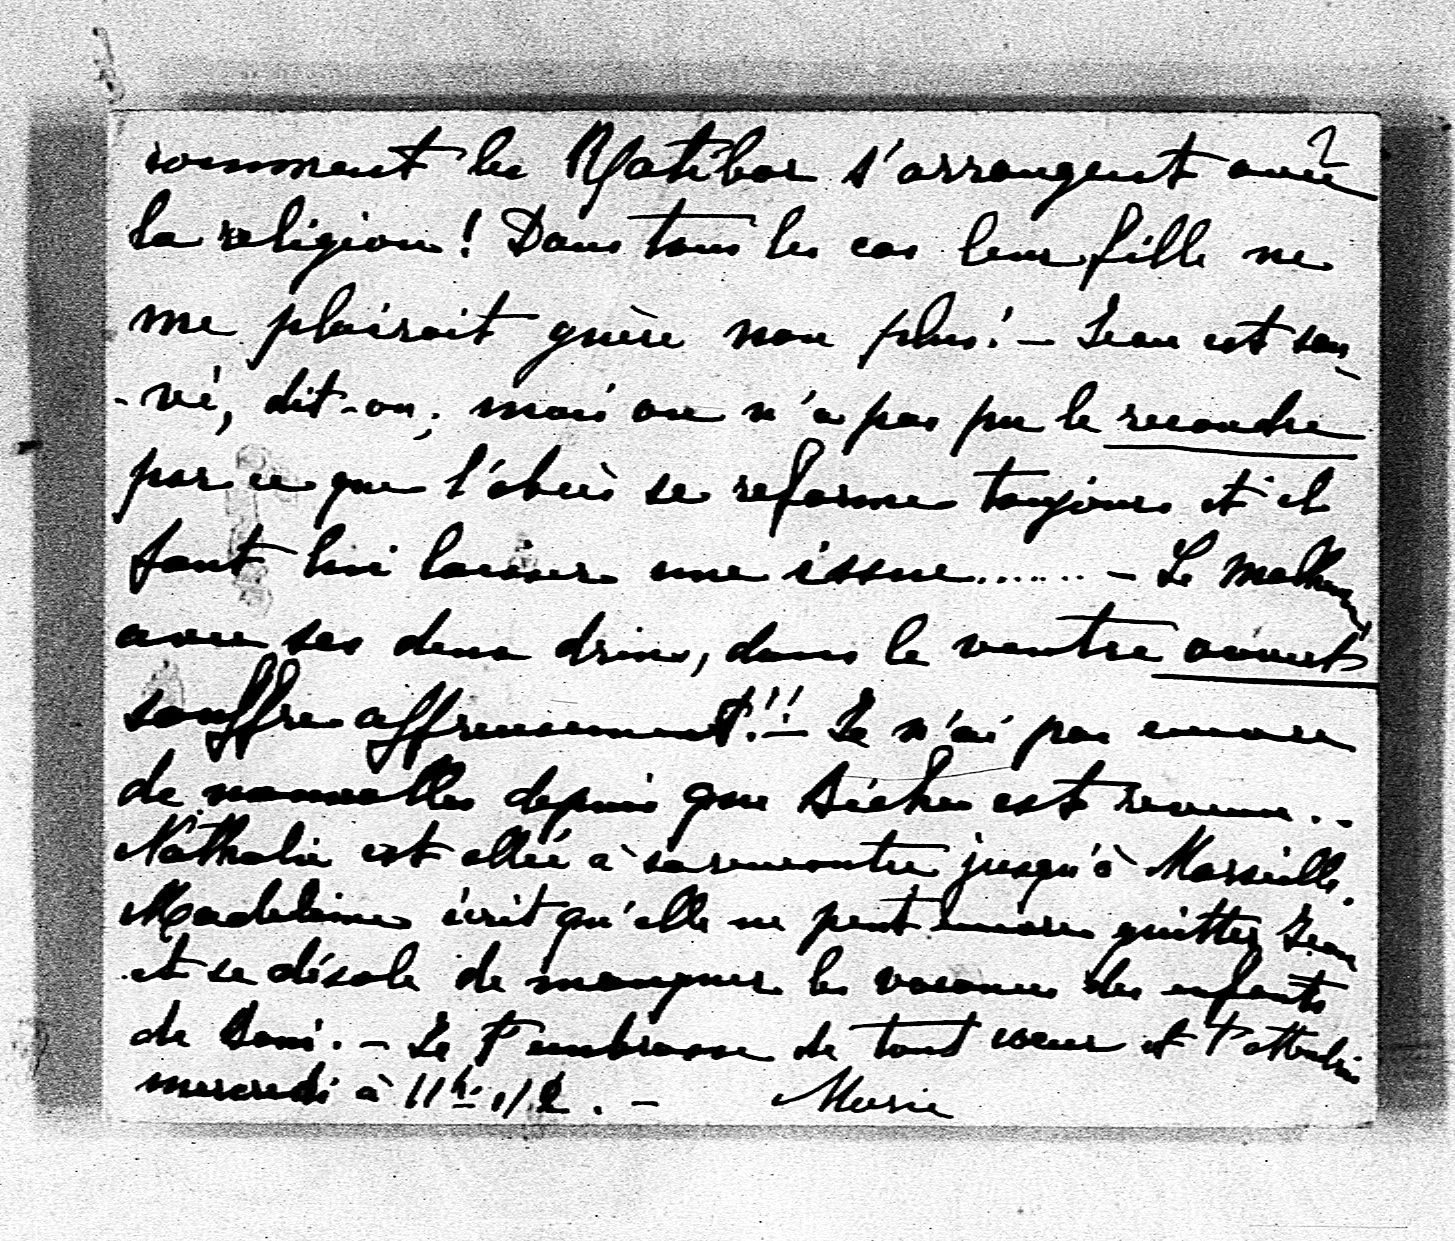 2
comment les Ratibor s'arrangent avec
la religion ! Dans tous les cas leur fille ne
me plairait guère non plus ! — Jean est sau
-vé, dit-on, mais on n'a pas pu le recoudre
parce que l'abcès se reforme toujours et il
faut lui laisser une issue....... — Le malheureux
avec ses deux drins, dans le ventre ouvert
souffre affreusement !!! — Je n'ai pas encore
de nouvelles depuis que est revenu ..
Nathalie est allée à sa rencontre jusqu'à Marseille.
Madeleine écrit qu'elle ne peut encore quitter Jean
et se désole de manquer les vacances des enfants
de Boni. — Je t'embrasse de tout coeur et t'attends
mercredi à 11h. 1/2 . — Marie